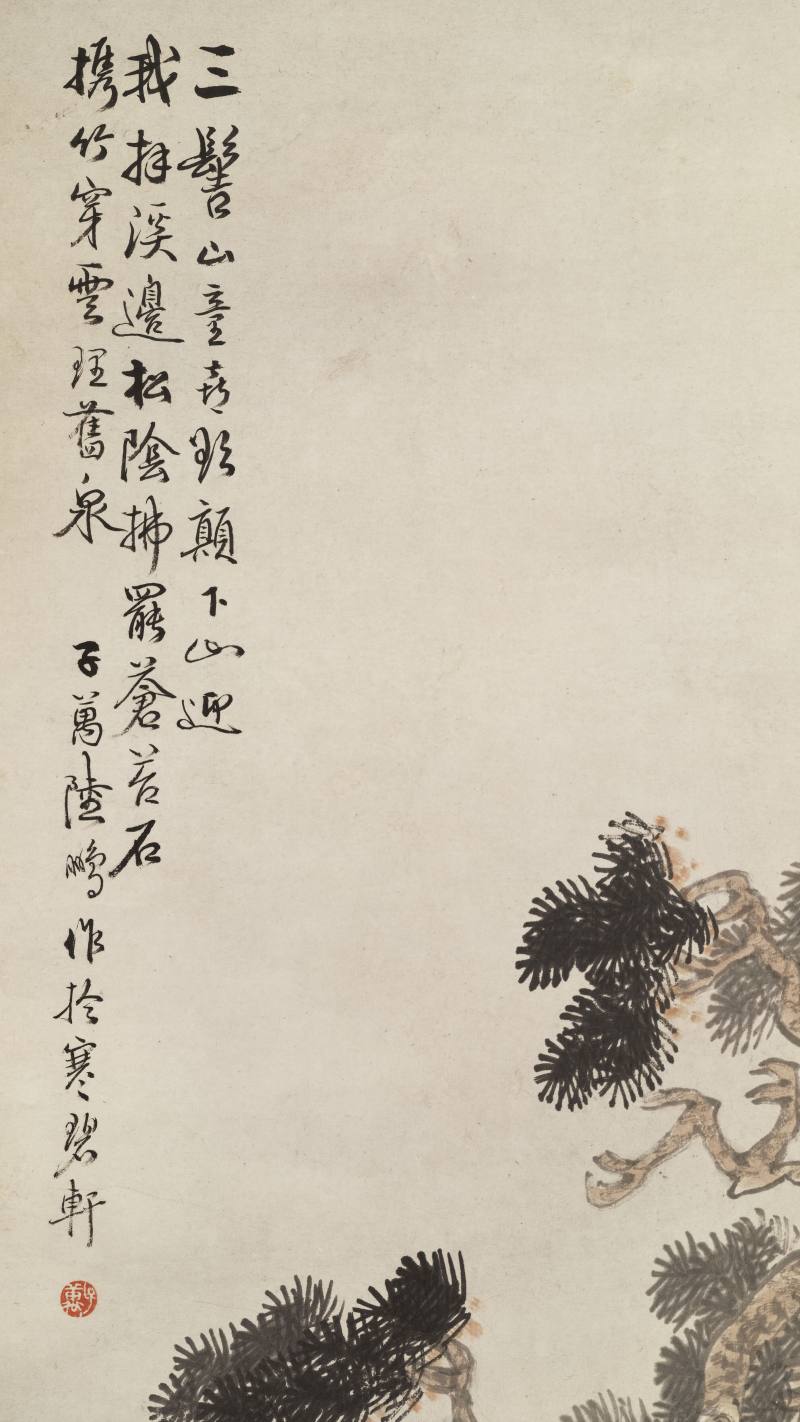 三髻山童喜欲顛下山迎
我拜溪邊松陰拂罷蒼苔石
携竹穿雲理舊泉 子萬陸鵬作於寒碧軒